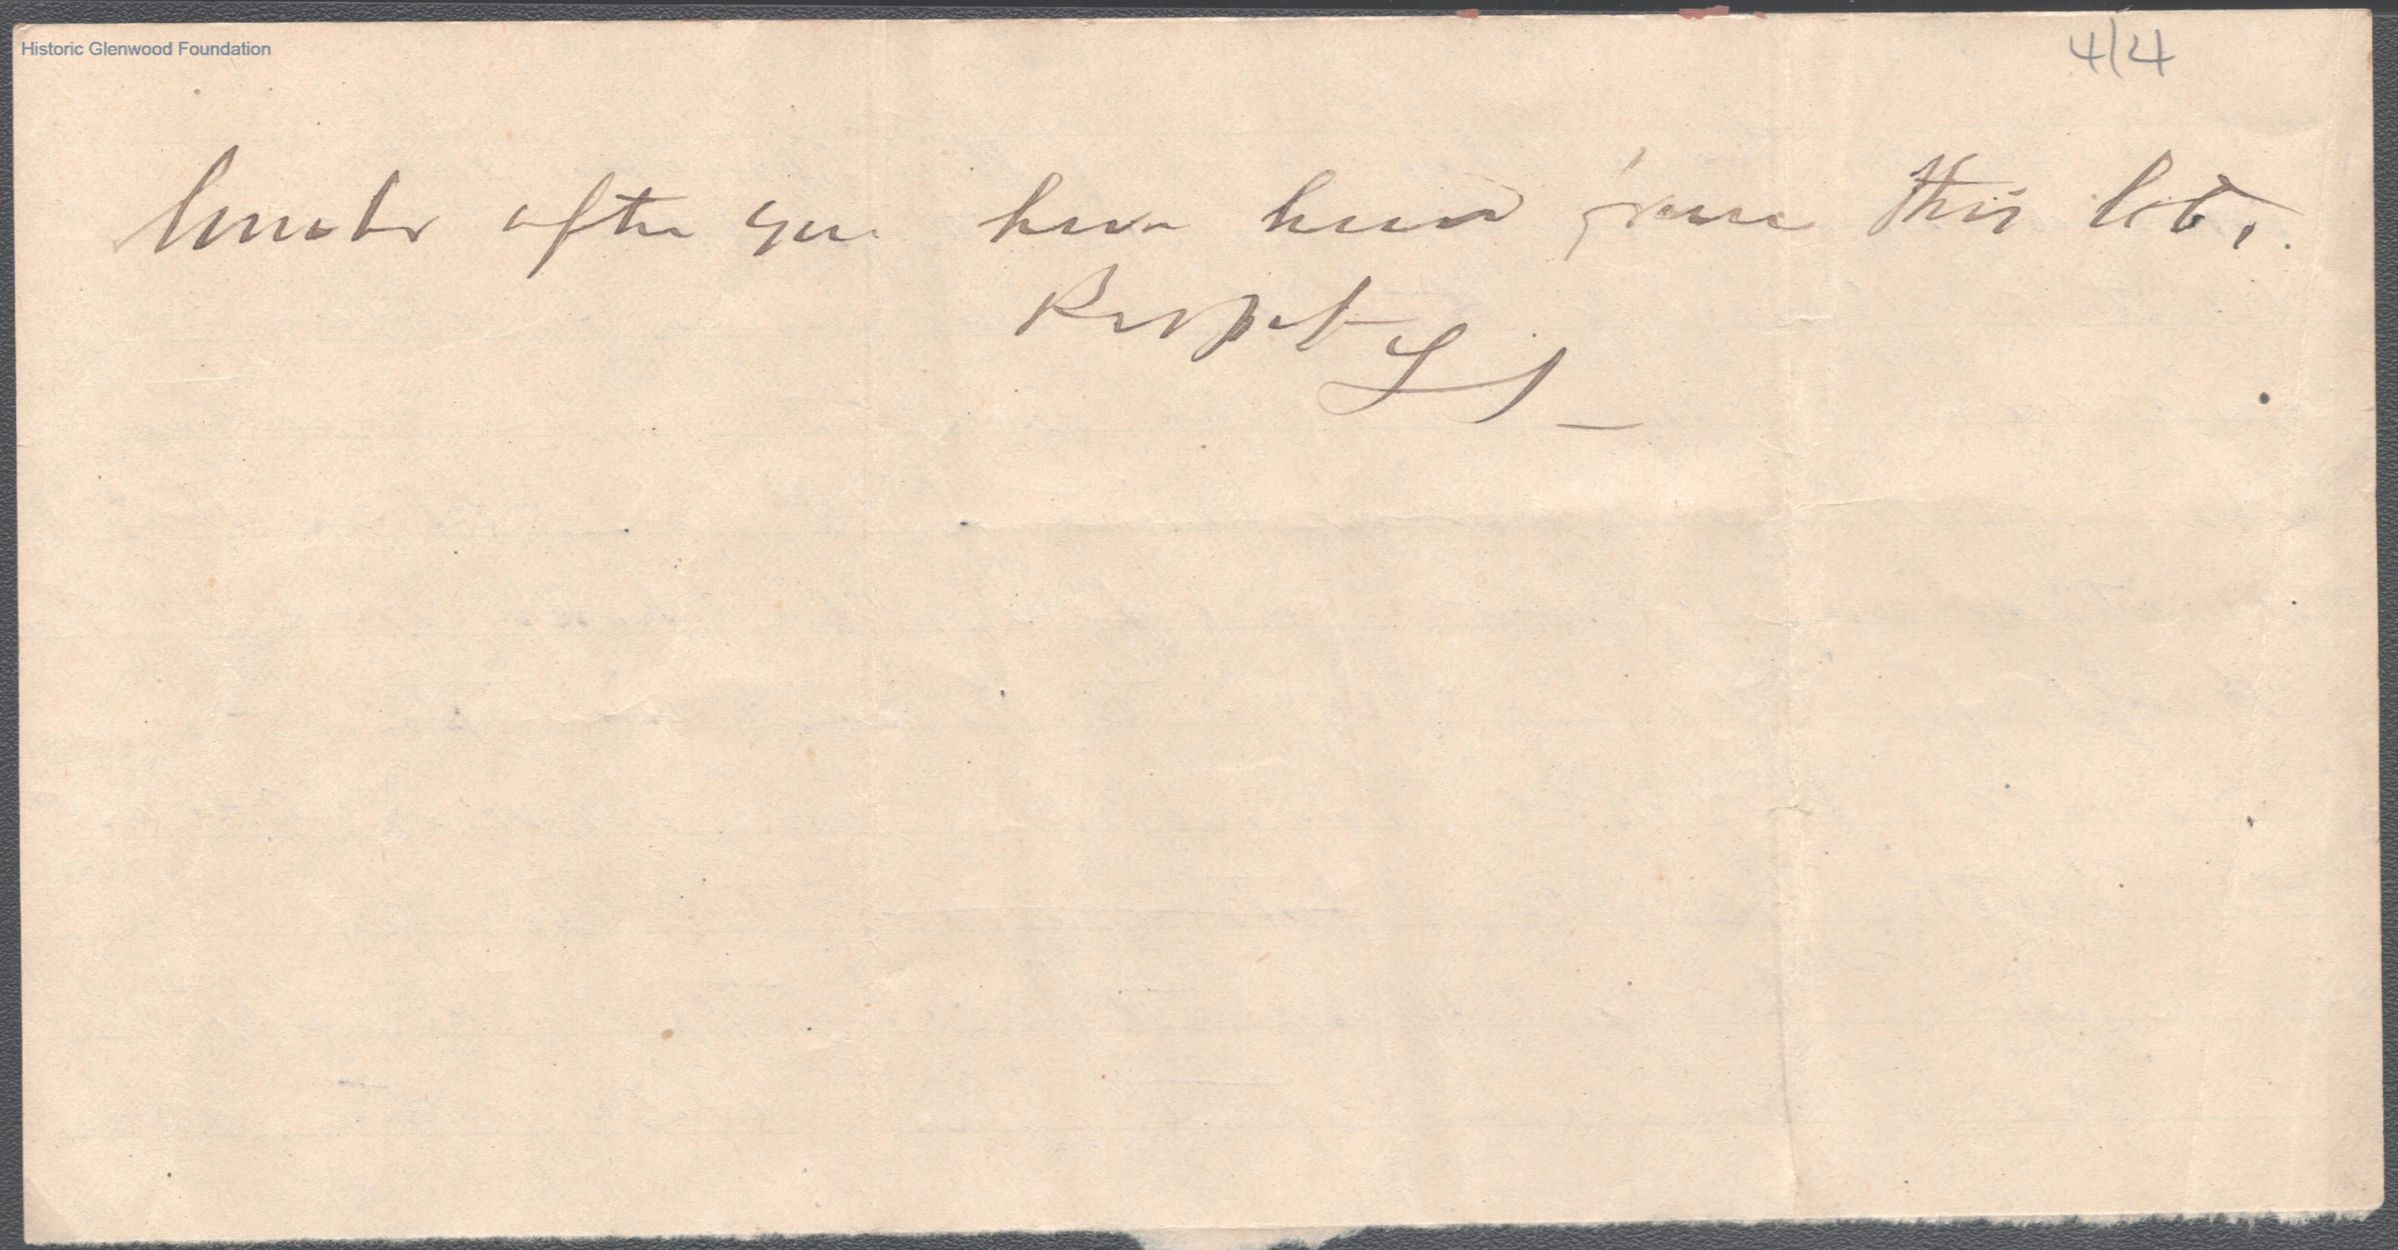 Historic Glenwood Foundation
4/4
after you have heard from this lot.
Respct
L S